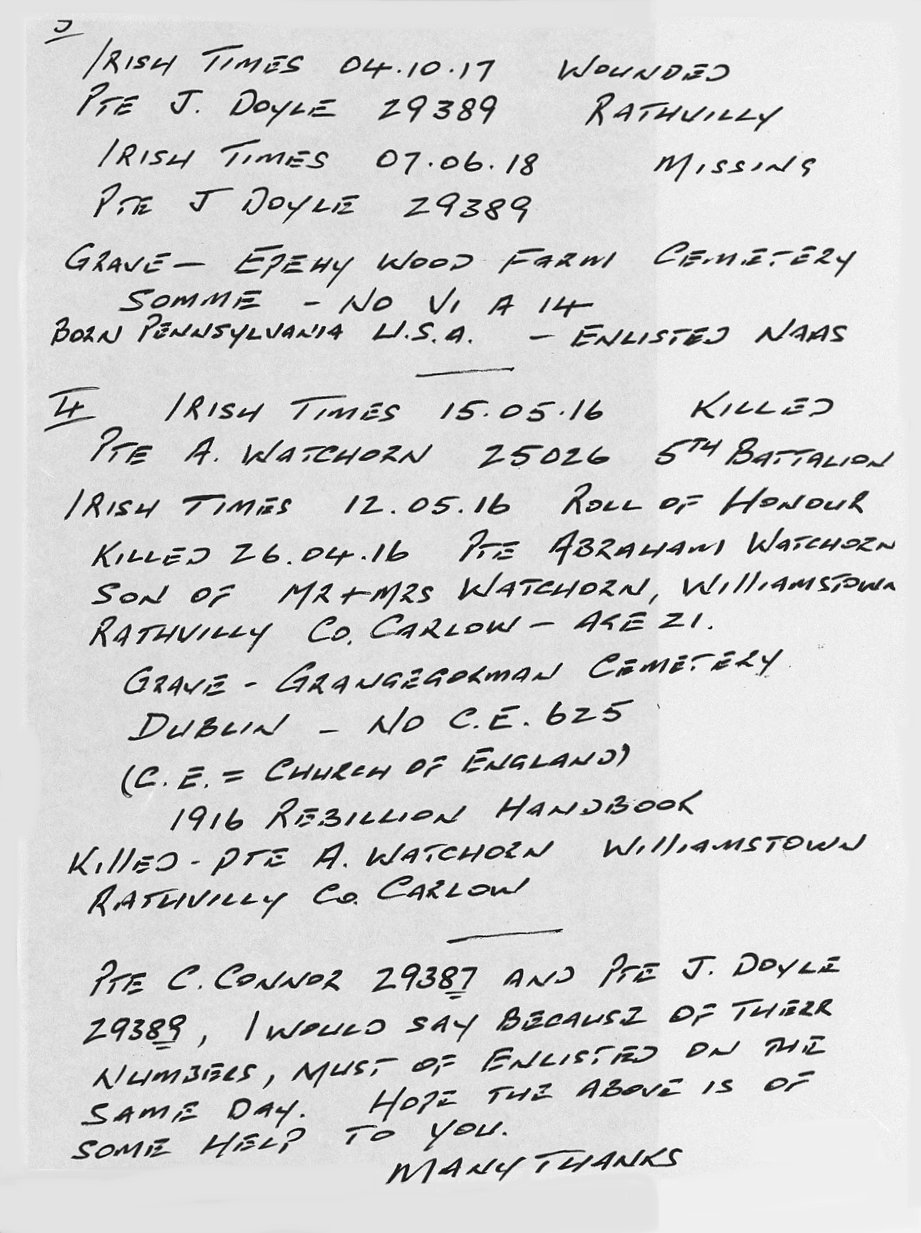 3
IRISH TIMES 04.10.17 WOUNDED
PTE J. DOYLE 29389 RATHVILLY
IRISH TIMES 07.06.18 MISSING
PTE J DOYLE 29389
GRAVE — EPEHY WOOD FARM CEMETERY
SOMME - NO VI A 14
BORN PENNSYLVANIA U.S.A. - ENLISTED NAAS
4 IRISH TIMES 15.05.16 KILLED
PTE A. WATCHORN 25026 5TH BATTALION
IRISH TIMES 12.05.16 ROLL OF HONOUR
KILLED 26.04.16 PTE ABRAHAM WATCHORN
SON OF MR + MRS WATCHORN, WILLIAMSTOWN
RATHVILLY CO. CARLOW - AGE 21.
GRAVE - GRANGEGORMAN CEMETERY
DUBLIN - NO C.E. 625
(C.E. = CHURCH OF ENGLAND)
1916 REBILLION HANDBOOK
KILLED - PTE A. WATCHORN WILLIAMSTOWN
RATHVILLY CO. CARLOW
PTE C. CONNOR 29387 AND PTE J. DOYLE
29389, I WOULD SAY BECAUSE OF THERR
NUMBERS, MUST OF ENLISTED ON THE
SAME DAY. HOPE THE ABOVE IS OF
SOME HELP TO YOU.
MANY THANKS